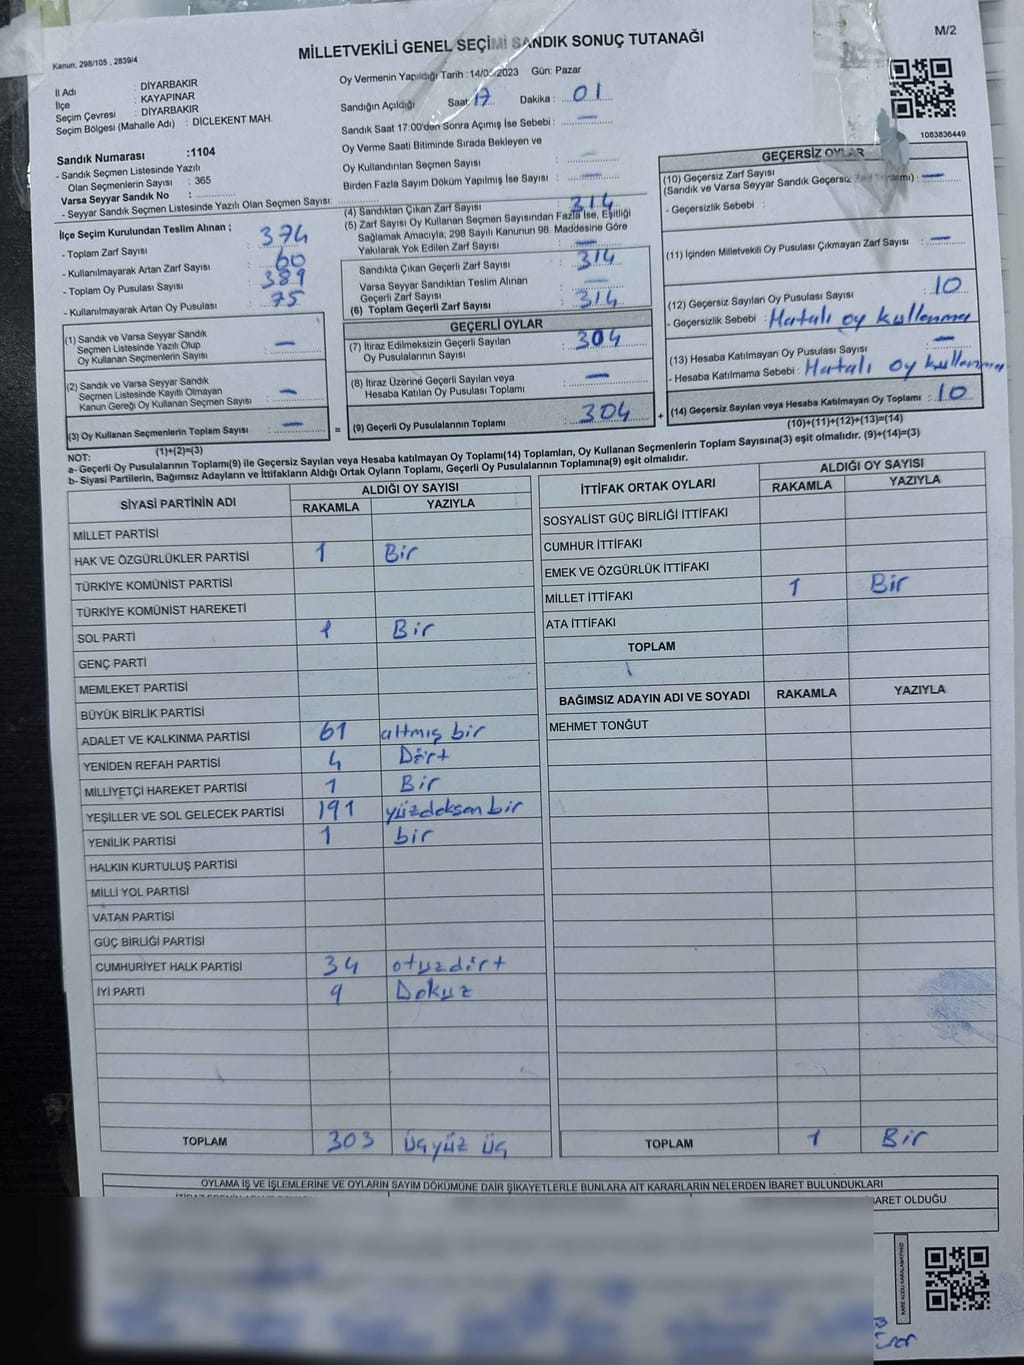 Kanun, 298/105 , 2839/4
MİLLETVEKİLİ GENEL SEÇİMİ SANDIK SONUÇ TUTANAĞI
M/2
İl Adı : DİYARBAKIR
İlçe : KAYAPINAR
Seçim Çevresi : DİYARBAKIR
Seçim Bölgesi (Mahalle Adı) : DİCLEKENT MAH.
Oy Vermenin Yapıldığı Tarih : 14/05/2023 Gün: Pazar
Sandığın Açıldığı Saat: 17 Dakika : 01
Sandık Saat 17:00'den Sonra Açımış İse Sebebi : —
Oy Verme Saati Bitiminde Sırada Bekleyen ve
Oy Kullandırılan Seçmen Sayısı —
Birden Fazla Sayım Döküm Yapılmış İse Sayısı : —
1083836449
Sandık Numarası :1104
- Sandık Seçmen Listesinde Yazılı
Olan Seçmenlerin Sayısı : 365
Varsa Seyyar Sandık No :
- Seyyar Sandık Seçmen Listesinde Yazılı Olan Seçmen Sayısı:
İlçe Seçim Kurulundan Teslim Alınan ;
- Toplam Zarf Sayısı 374
- Kullanılmayarak Artan Zarf Sayısı 60
- Toplam Oy Pusulası Sayısı 389
- Kullanılmayarak Artan Oy Pusulası 75
(1) Sandık ve Varsa Seyyar Sandık
Seçmen Listesinde Yazılı Olup
Oy Kullanan Seçmenlerin Sayısı —
(2) Sandık ve Varsa Seyyar Sandık
Seçmen Listesinde Kayıtlı Olmayan
Kanun Gereği Oy Kullanan Seçmen Sayısı —
(3) Oy Kullanan Seçmenlerin Toplam Sayısı —
(1)+(2)=(3)
(4) Sandıktan Çıkan Zarf Sayısı 314
(5) Zarf Sayısı Oy Kullanan Seçmen Sayısından Fazla İse, Eşitliği
Sağlamak Amacıyla; 298 Sayılı Kanunun 98. Maddesine Göre
Yakılarak Yok Edilen Zarf Sayısı —
Sandıkta Çıkan Geçerli Zarf Sayısı 314
Varsa Seyyar Sandıktan Teslim Alınan
Geçerli Zarf Sayısı —
(6) Toplam Geçerli Zarf Sayısı 314
GEÇERLİ OYLAR
(7) İtiraz Edilmeksizin Geçerli Sayılan
Oy Pusulalarının Sayısı 304
(8) İtiraz Üzerine Geçerli Sayılan veya
Hesaba Katılan Oy Pusulası Toplamı —
= (9) Geçerli Oy Pusulalarının Toplamı 304 +
GEÇERSİZ OYLAR
(10) Geçersiz Zarf Sayısı
(Sandık ve Varsa Seyyar Sandık Geçersiz Zarf Toplamı) : —
- Geçersizlik Sebebi :
(11) İçinden Milletvekili Oy Pusulası Çıkmayan Zarf Sayısı —
(12) Geçersiz Sayılan Oy Pusulası Sayısı 10
- Geçersizlik Sebebi : Hatalı oy kullanma
(13) Hesaba Katılmayan Oy Pusulası Sayısı —
- Hesaba Katılmama Sebebi : Hatalı oy kullanma
(14) Geçersiz Sayılan veya Hesaba Katılmayan Oy Toplamı : 10
(10)+(11)+(12)+(13)=(14)
NOT:
a- Geçerli Oy Pusulalarının Toplamı(9) ile Geçersiz Sayılan veya Hesaba katılmayan Oy Toplamı(14) Toplamları, Oy Kullanan Seçmenlerin Toplam Sayısına(3) eşit olmalıdır. (9)+(14)=(3)
b- Siyasi Partilerin, Bağımsız Adayların ve İttifakların Aldığı Ortak Oyların Toplamı, Geçerli Oy Pusulalarının Toplamına(9) eşit olmalıdır.
SİYASİ PARTİNİN ADI
ALDIĞI OY SAYISI
RAKAMLA YAZIYLA
MİLLET PARTİSİ
HAK VE ÖZGÜRLÜKLER PARTİSİ 1 Bir
TÜRKİYE KOMÜNİST PARTİSİ
TÜRKİYE KOMÜNİST HAREKETİ
SOL PARTİ 1 Bir
GENÇ PARTİ
MEMLEKET PARTİSİ
BÜYÜK BİRLİK PARTİSİ
ADALET VE KALKINMA PARTİSİ 61 altmış bir
YENİDEN REFAH PARTİSİ 4 Dört
MİLLİYETÇİ HAREKET PARTİSİ 1 Bir
YEŞİLLER VE SOL GELECEK PARTİSİ 191 yüzdoksan bir
YENİLİK PARTİSİ 1 bir
HALKIN KURTULUŞ PARTİSİ
MİLLİ YOL PARTİSİ
VATAN PARTİSİ
GÜÇ BİRLİĞİ PARTİSİ
CUMHURİYET HALK PARTİSİ 34 otuzdört
İYİ PARTİ 9 Dokuz
TOPLAM 303 üçyüz üç
İTTİFAK ORTAK OYLARI
ALDIĞI OY SAYISI
RAKAMLA YAZIYLA
SOSYALİST GÜÇ BİRLİĞİ İTTİFAKI
CUMHUR İTTİFAKI
EMEK VE ÖZGÜRLÜK İTTİFAKI
MİLLET İTTİFAKI 1 Bir
ATA İTTİFAKI
TOPLAM
BAĞIMSIZ ADAYIN ADI VE SOYADI RAKAMLA YAZIYLA
MEHMET TONĞUT
TOPLAM 1 Bir
OYLAMA İŞ VE İŞLEMLERİNE VE OYLARIN SAYIM DÖKÜMÜNE DAİR ŞİKAYETLERLE BUNLARA AİT KARARLARIN NELERDEN İBARET BULUNDUKLARI
İBARET OLDUĞU